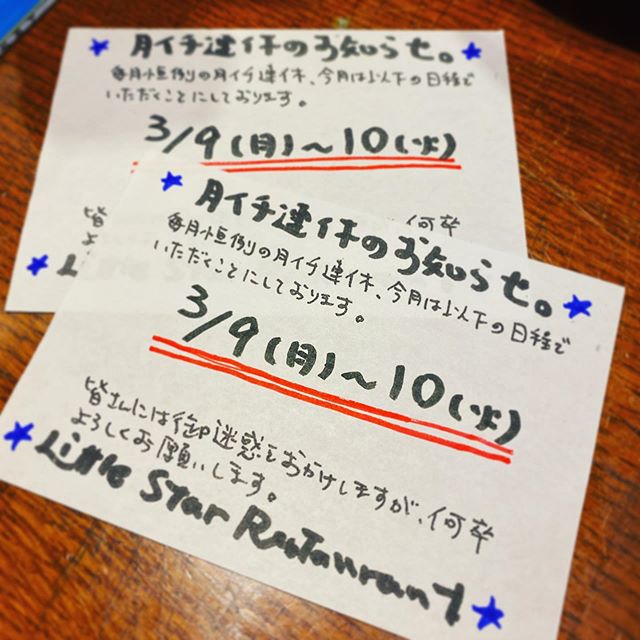 月イチ連休のお知らせ。
毎月恒例の月イチ連休、今月は以下の日程で
いただくことにしております。
3/9(月)～10(火)
何卒
皆
よ
L
月イチ連休のお知らせ。
毎月恒例の月イチ連休、今月は以下の日程で
いただくことにしております。
3/9(月)～10(火)
皆さんには御迷惑をおかけしますが、何卒
よろしくお願いします。
Little Star Restaurant